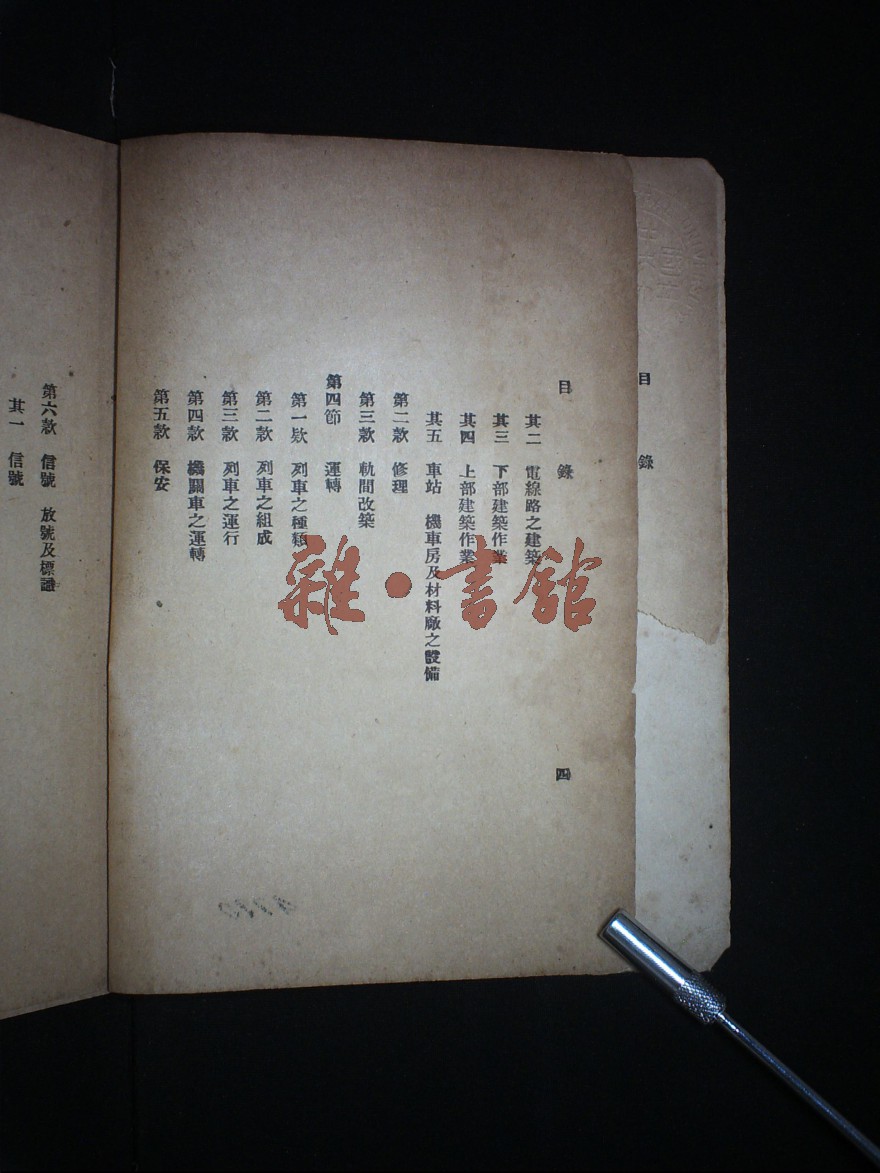 目錄
目錄
四
其二 電線路之建築
其三 下部建築作業
其四 上部建築作業
其五 車站 機車房及材料廠之設備
第二款 修理
第三款 軌間改築
第四節 運轉
第一欵 列車之種類
第二款 列車之組成
第三款 列車之運行
第四款 機關車之運轉
第五款 保安
第六款 信號 放號及標識
其一 信號
雜·書館